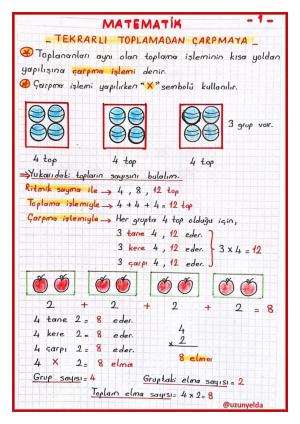 MATEMATİK
- 1 -
- TEKRARLI TOPLAMADAN ÇARPMAYA -
Toplananları aynı olan toplama işleminin kısa yoldan
yapılışına çarpma işlemi denir.
Çarpma işlemi yapılırken "x" sembolü kullanılır.
3 grup var.
4 top 4 top 4 top
Yukarıdaki topların sayısını bulalım.
Ritmik sayma ile → 4, 8, 12 top
Toplama işlemiyle → 4 + 4 + 4 = 12 top
Çarpma işlemiyle → Her grupta 4 top olduğu için,
3 tane 4, 12 eder.
3 kere 4, 12 eder. 3 x 4 = 12
3 çarpı 4, 12 eder.
2 + 2 + 2 + 2 = 8
4 tane 2 = 8 eder.
4 kere 2 = 8 eder.
4 çarpı 2 = 8 eder.
4 x 2 = 8 elma
4
x 2
8 elma
Grup sayısı = 4 Gruptaki elma sayısı = 2
Toplam elma sayısı = 4 x 2 = 8
@uzunyelda